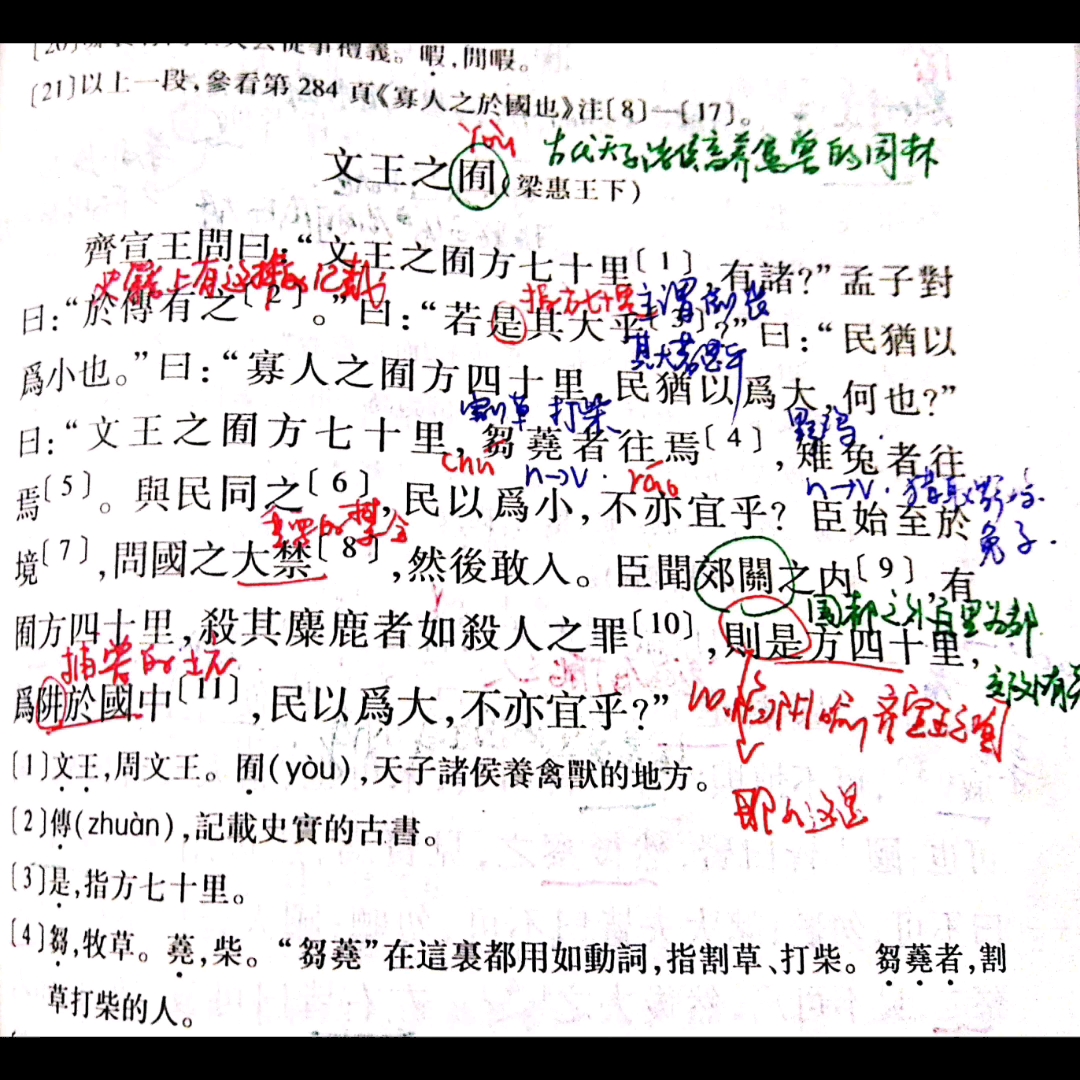 禮義。暇,閒暇。
〔21〕以上一段,參看第284頁《寡人之於國也》注〔8〕—〔17〕。
yòu
古代天子诸侯畜养鸟兽的园林
文王之囿(梁惠王下)
齊宣王問曰:“文王之囿方七十里〔1〕,有諸?”孟子對
史籍上有这样的记载
指方七十里
主谓倒装
曰:“於傳有之〔2〕。”曰:“若是其大乎〔3〕?”曰:“民猶以
其大若是乎
爲小也。”曰:“寡人之囿方四十里,民猶以爲大,何也?”
割草 打柴
曰:“文王之囿方七十里,芻蕘者往焉〔4〕,雉兔者往
chú
n→v.
ráo
n→v.
焉〔5〕。與民同之〔6〕,民以爲小,不亦宜乎?臣始至於
兔子.
境〔7〕,問國之大禁〔8〕,然後敢入。臣聞郊關之内〔9〕,有
囿方四十里,殺其麋鹿者如殺人之罪〔10〕,則是方四十里,
国都之外百里为郊
捕兽的土坑
爲阱於國中〔11〕,民以爲大,不亦宜乎?”
那么这是
〔1〕文王,周文王。囿(yòu),天子諸侯養禽獸的地方。
〔2〕傳(zhuàn),記載史實的古書。
〔3〕是,指方七十里。
〔4〕芻,牧草。蕘,柴。“芻蕘”在這裏都用如動詞,指割草、打柴。芻蕘者,割
草打柴的人。